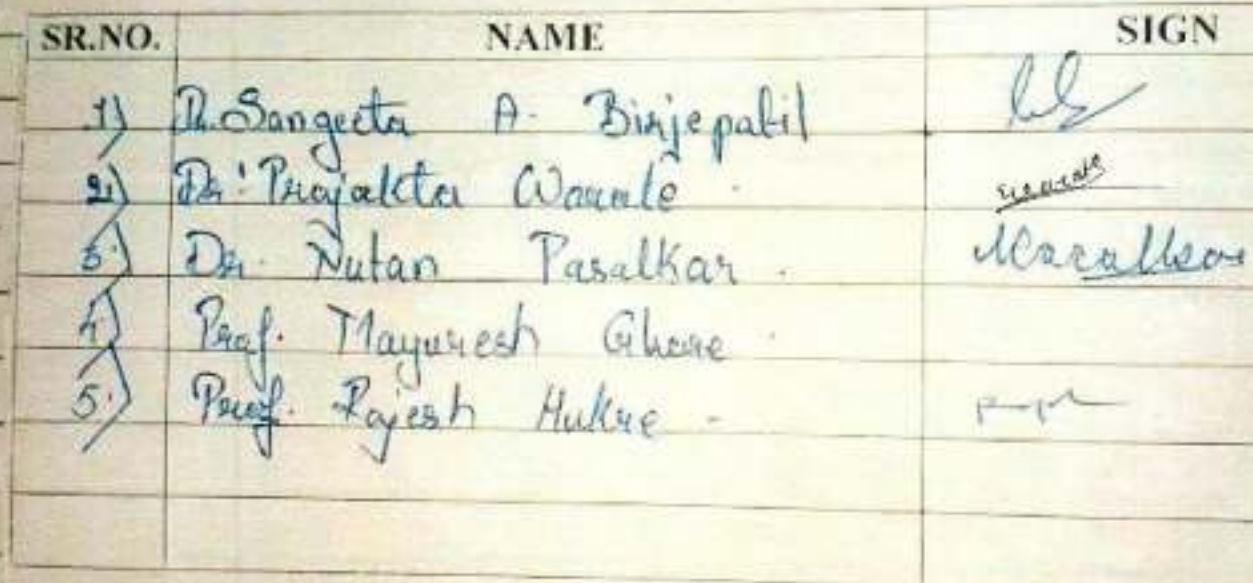 SR.NO. NAME SIGN
1) Dr. Sangeeta A. Birjepatil
2) Dr. Prajakta Warale
3) Dr. Nutan Pasalkar
4) Prof. Mayuresh Ghore
5) Prof. Rajesh Hukre